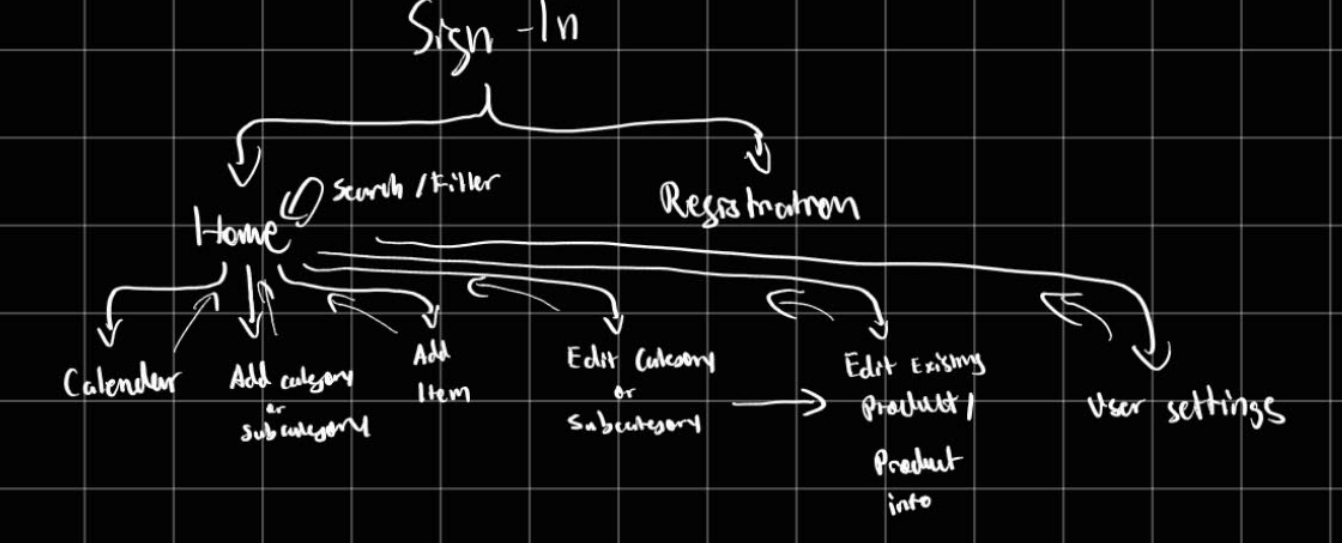 Sign-In
Search / Filter
Home
Registration
Calender
Add category
or
Subcategory
Add
Item
Edit Category
or
Subcategory
Edit Existing
Product /
Product
info
User settings